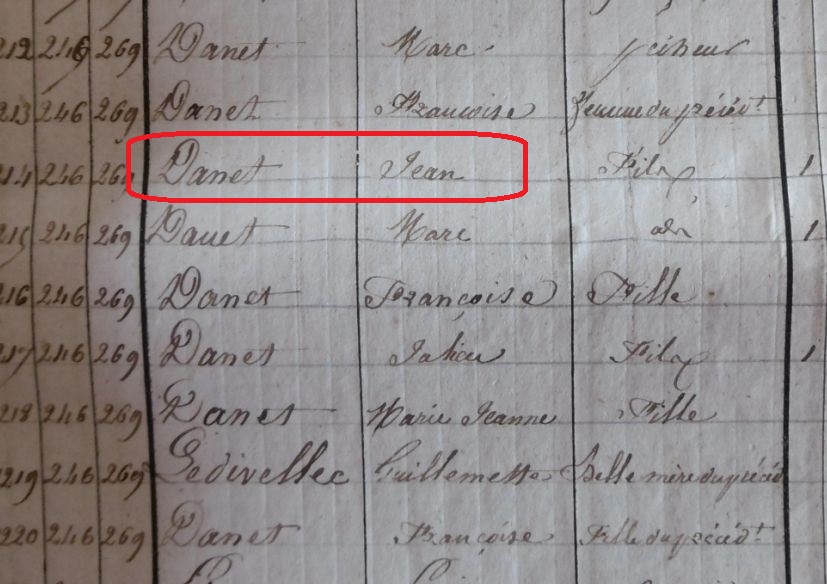 212 246 269 Danet Marc pêcheur
213 246 269 Danet Françoise femme du précédt
214 246 269 Danet Jean Fils 1
215 246 269 Danet Marc id 1
216 246 269 Danet Françoise Fille
217 246 269 Danet Julien Fils 1
218 246 269 Danet Marie Jeanne Fille
219 246 269 Ledivellec Guillemette Belle mère du précéd
220 246 269 Danet Françoise Fille du précédt